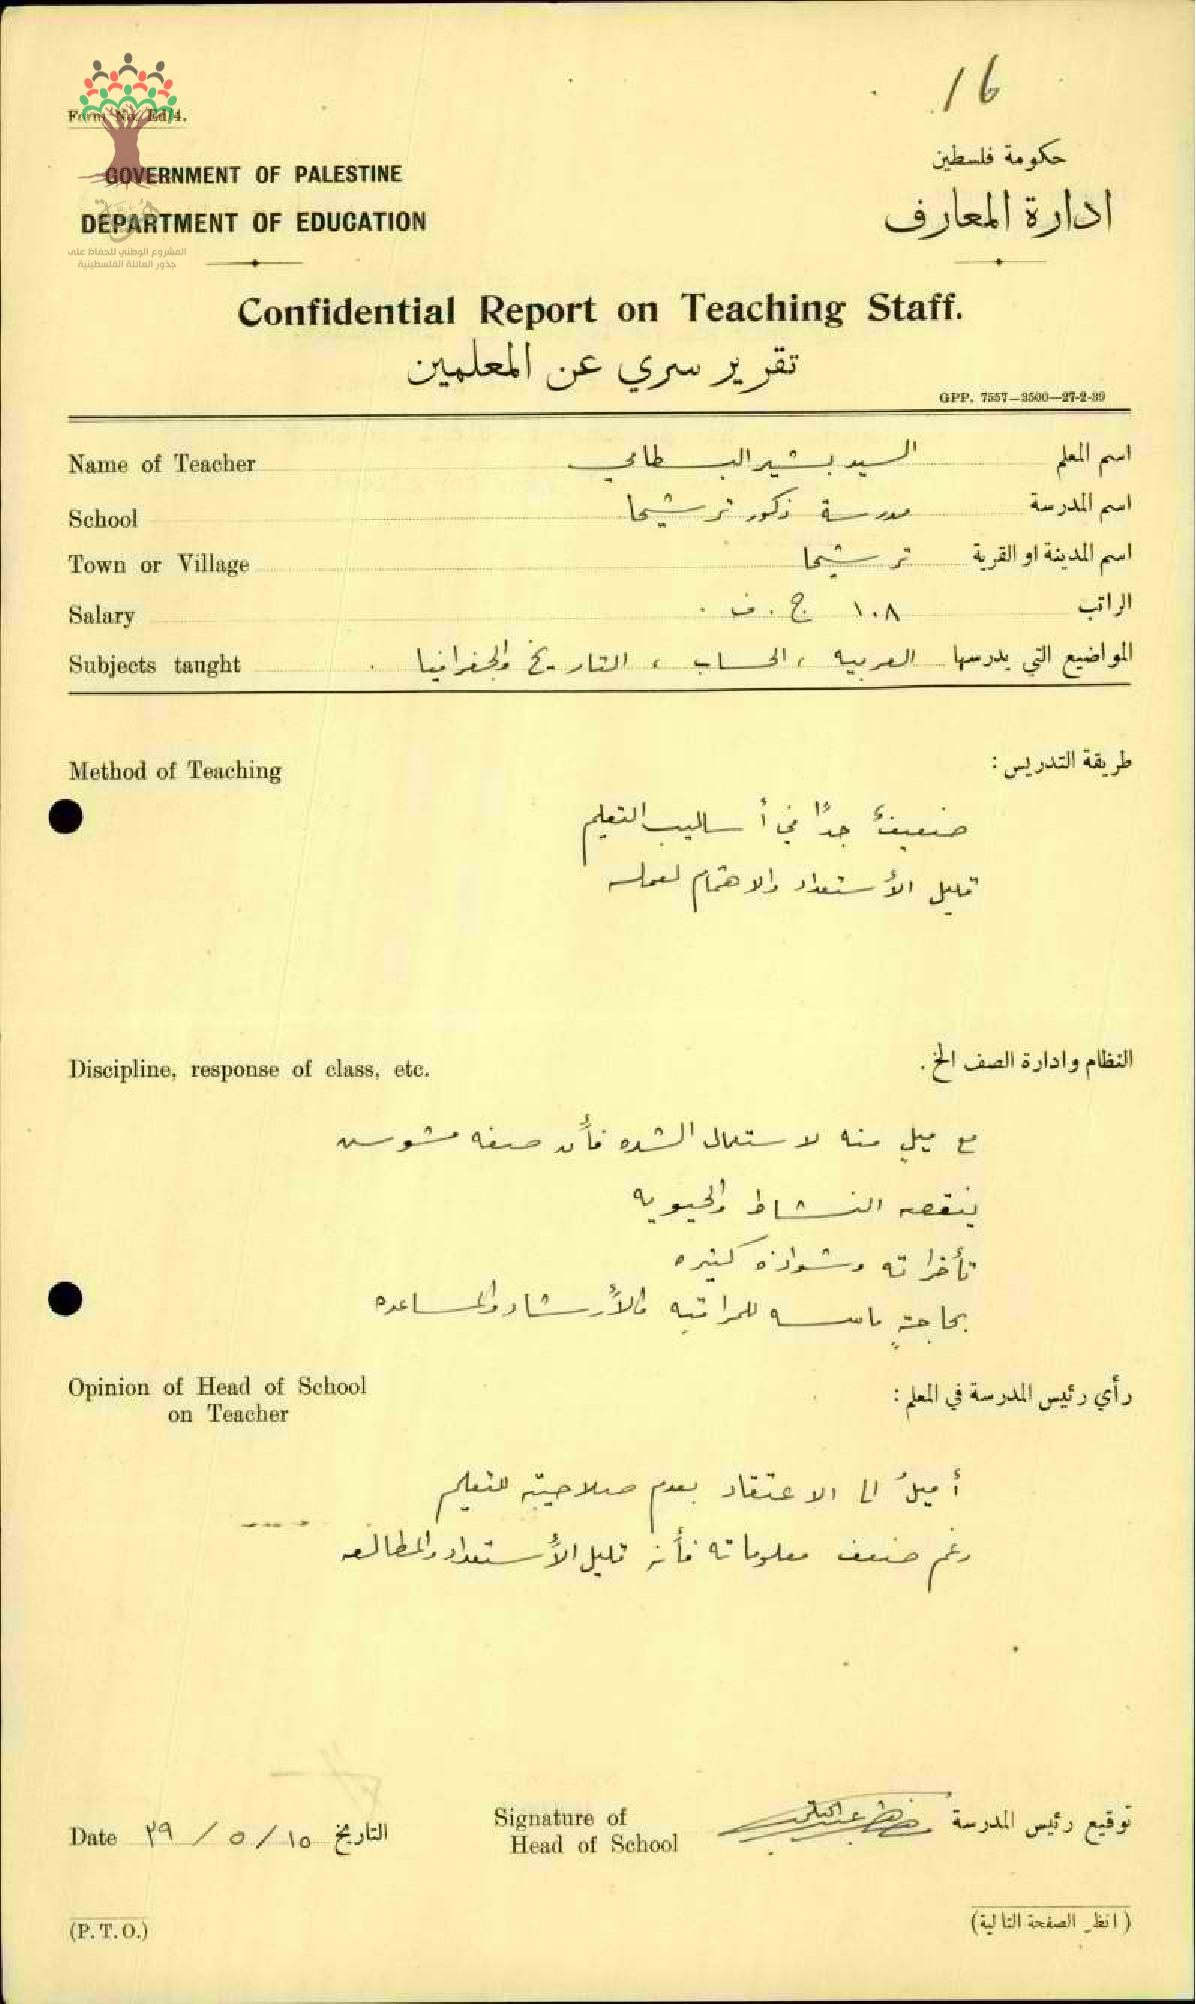 16
Form No. Ed/4.
حكومة فلسطين
GOVERNMENT OF PALESTINE
ادارة المعارف
DEPARTMENT OF EDUCATION
هُوِيَّة
المشروع الوطني للحفاظ على
جذور العائلة الفلسطينية
Confidential Report on Teaching Staff.
تقرير سري عن المعلمين
GPP. 7557—3500—27-2-39
Name of Teacher السيد بشير البسطامي اسم المعلم
School مدرسة ذكور ترشيحا اسم المدرسة
Town or Village ترشيحا اسم المدينة او القرية
Salary ١٠٨ ج. ف. الراتب
Subjects taught العربيه ، الحساب ، التاريخ والجغرافيا . المواضيع التي يدرسها
Method of Teaching طريقة التدريس :
ضعيف جدًا في أساليب التعليم
قليل الأستعداد والاهتمام لعمله
Discipline, response of class, etc. النظام وادارة الصف الخ.
مع ميل منه لاستعمال الشده فأن صفه مشوش
ينقصه النشاط والحيويه
تأخراته وشواذه كثيره
بحاجةٍ ماسه للمراقبه والأرشاد والمساعده
Opinion of Head of School
on Teacher
رأي رئيس المدرسة في المعلم :
أميلُ الى الاعتقاد بعدم صلاحيته للتعليم
رغم ضعف معلوماته فأنه قليل الأستعداد والمطالعه
Signature of
Head of School
توقيع رئيس المدرسة
Date ٣٩ / ٥ / ١٥ التاريخ
(P. T. O.)
(انظر الصفحة التالية)